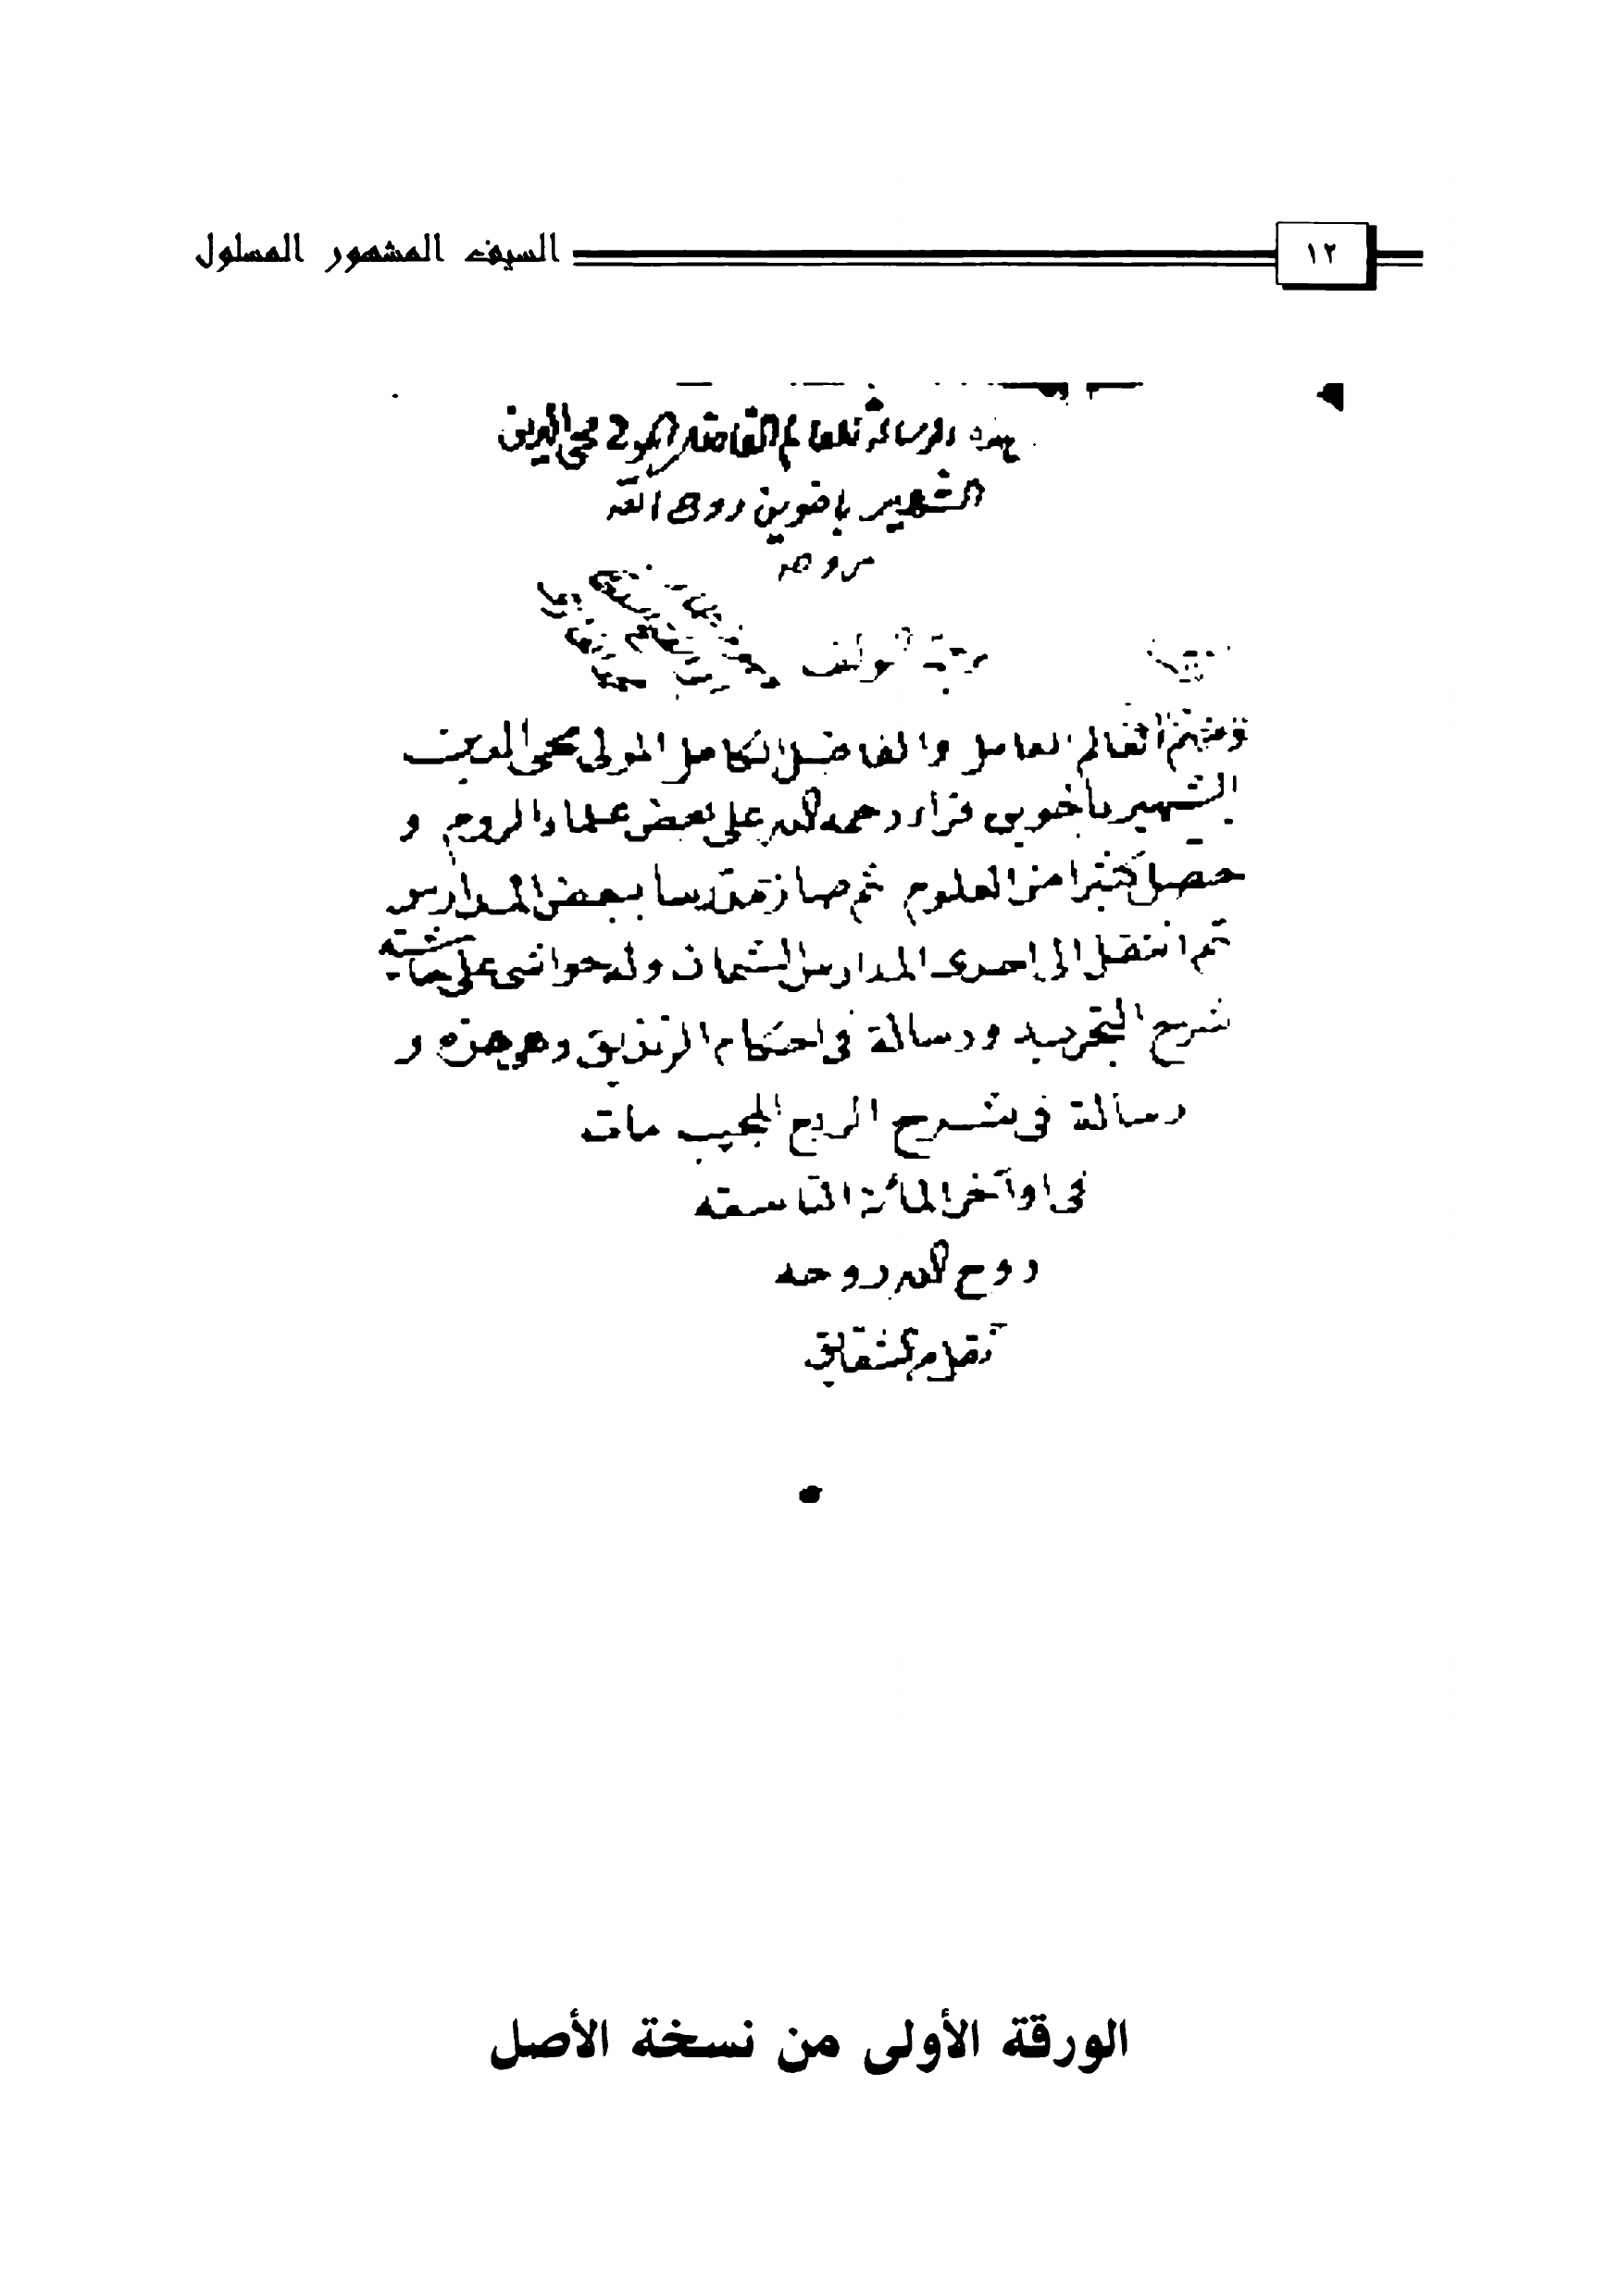 السيف المشهور المسلول
١٢
هذه الرسالة للعالم الفاضل المولى محيي الدين
الشهير باخوين روح الله
روحه
ومنهم العالم العامل والفاضل الكامل المولى محيى الدين
الشهير باخوين قراء رحمه الله على بعض علماء الروم و
حصل كثيرا من العلوم ثم صار مدرسا ببعض المدارس
ثم انتقل الى احدى المدارس الثمان وله حواشى على حاشية
شرح التجريد ورسالة فى احكام الزنديق وهى هذه و
رسالة فى شرح الربع المجيب مات
فى اواخر المائة التاسعة
روح الله روحه
الشقائق
الورقة الأولى من نسخة الأصل